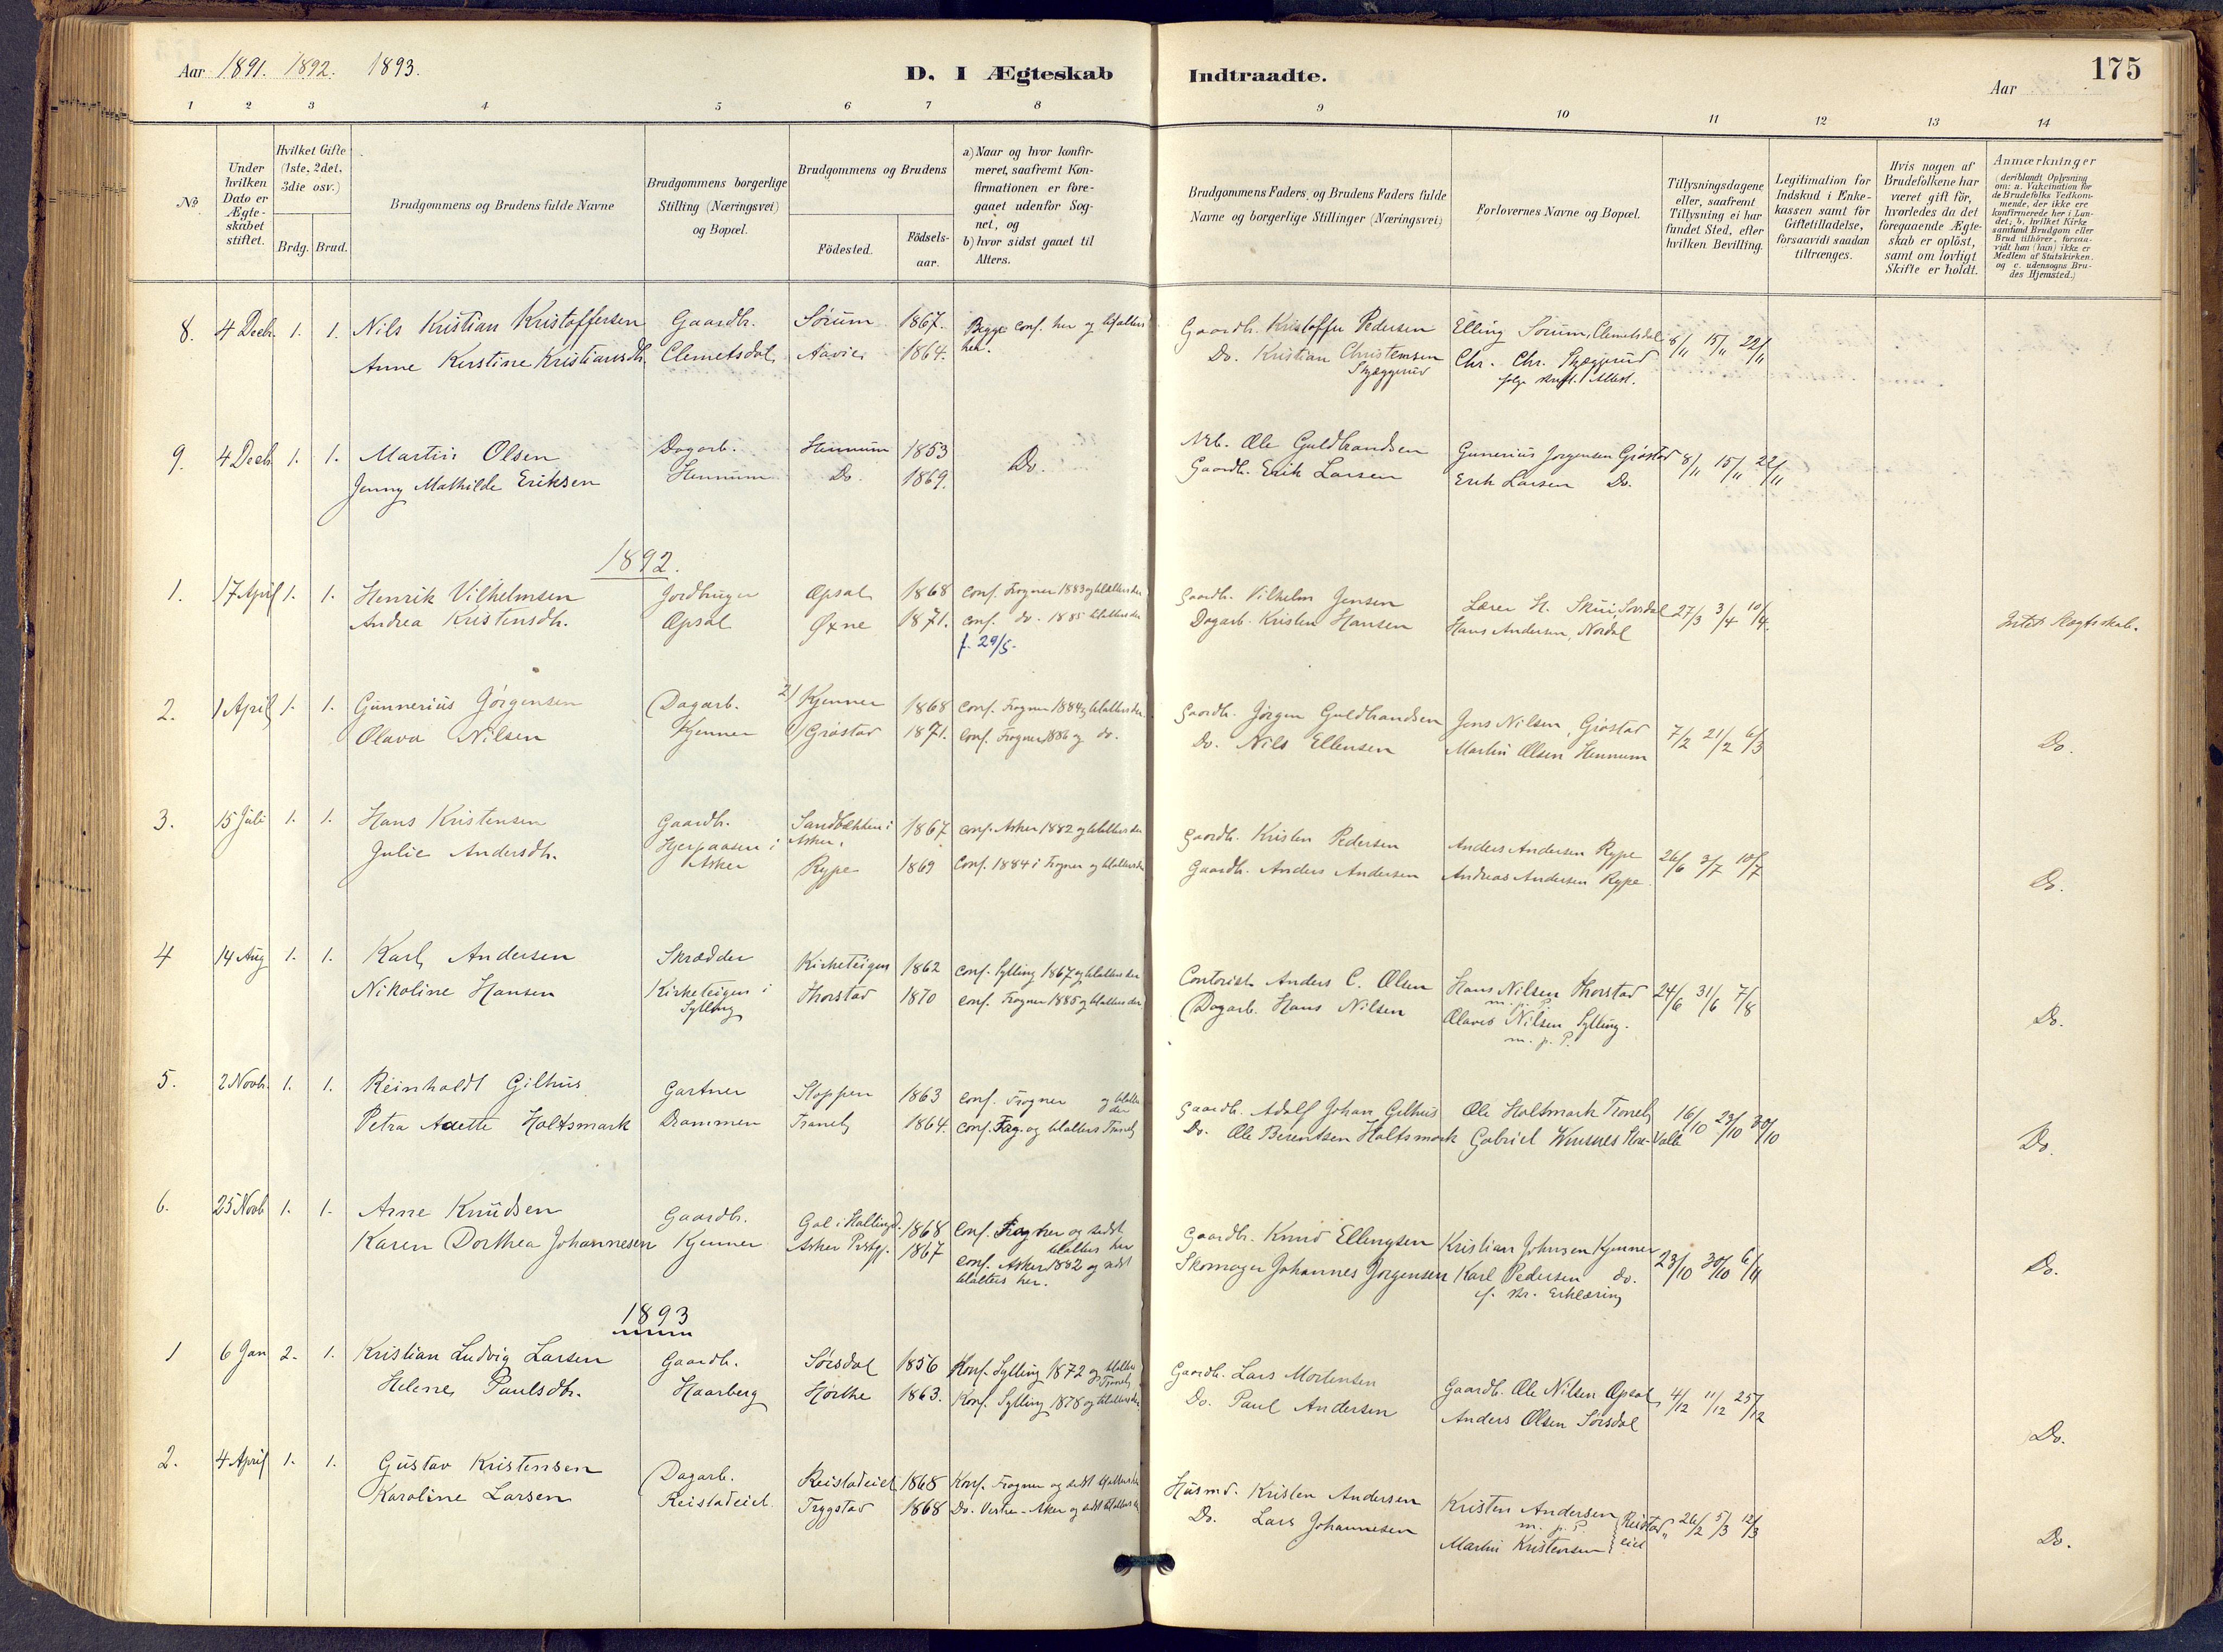 Aar 1891. 1892. 1893.
D. I Ægteskab Indtraadte.
Aar
175
1 2 3 4 5 6 7 8 9 10 11 12 13 14
No.
Under hvilken Dato er Ægteskabet stiftet.
Hvilket Gifte (1ste, 2det, 3die osv.)
Brdg. Brud.
Brudgommens og Brudens fulde Navne
Brudgommens borgerlige Stilling (Næringsvei) og Bopæl.
Brudgommens og Brudens
Födested.
Födsels-aar.
a) Naar og hvor konfirmeret, saafremt Konfirmationen er foregaaet udenfor Sognet, og
b) hvor sidst gaaet til Alters.
Brudgommens Faders og Brudens Faders fulde Navne og borgerlige Stillinger (Næringsvei)
Forlovernes Navne og Bopæl.
Tillysningsdagene eller, saafremt Tillysning ei har fundet Sted, efter hvilken Bevilling.
Legitimation for Indskud i Enkekassen samt for Giftetilladelse, forsaavidt saadan tiltrænges.
Hvis nogen af Brudefolkene har været gift för, hvorledes da det foregaaende Ægteskab er oplöst, samt om lovligt Skifte er holdt.
Anmærkninger (deriblandt Oplysning om: a. Vakcination for de Brudefolks Vedkommende, der ikke ere konfirmerede her i Landet; b. hvilket Kirkesamfund Brudgom eller Brud tilhörer, forsaavidt han (hun) ikke er Medlem af Statskirken. og c. udensogns Brudes Hjemsted.)
8. 4 Decb. 1. 1. Nils Kristian Kristoffersen Gaardbr. Sörum 1867. Begge conf. her og blalters Gaardb. Kristoffer Pedersen Elling Sorum, Clemetsdal 8/11 15/11 22/11
Anne Kirstine Kristiansdtr. Clemetsdal Aavie 1864. her. Do. Kristian Christensen Chr. Chr. Skjæggerud
Skjæggerud
9. 4 Decb. 1. 1. Martin Olsen Dagarb. Hennum 1853 Do. Ole Guldbrandsen Gunerius Jorgensen Gröstad 8/11 15/11 22/11
Jenny Mathilde Eriksen Hennum Do. 1869. Gaardb. Erik Larsen Erik Larsen Do.
1892.
1. 17 April 1. 1. Henrik Vilhelmsen Jordbruger Opsal 1868 Conf. Frogner 1883 og blalters der Gaardb. Vilhelm Jensen Lærer H. 27/3 3/4 10/4 Intet Slægtskab.
Andrea Kristensdtr. Opsal Öxne 1871. Conf. do. 1885 blalters der Dagarb. Kristen Hansen Hans Andersen, Nordal
f. 29/5.
2. 1 April 1. 1. Gunnerius Jörgensen Dagarb. 2) Kjenner 1868 Conf. Frogner 1884 og blalters der Gaardb. Jörgen Guldbrandsen Jens Nilsen, Gröstad 7/2 21/2 6/3 Do.
Olava Nilsen Kjenner Gröstad 1871. Conf. Frogner 1886 og do. Do. Nils Ellensen Martin Olsen Hennum
3. 15 Juli 1. 1. Hans Kristensen Gaardb. Sandbækken i Asker. 1867 conf. Asker 1882 og blalters der Gaardb. Kristen Pedersen Anders Andersen Rype 26/6 3/7 10/7 Do.
Julie Andersdtr. i Asker Rype 1869 Conf. 1884 i Frogner og blalters der Gaardb. Anders Andersen Andreas Andersen Rype
4 14 Aug 1. 1. Karl Andersen Skrædder Kirketeigen 1862 conf. Sylling 1867 og blalters der Contorist Anders C. Olsen Hans Nilsen Thorstad 24/6 31/6 7/8 Do.
m. p. P.
Nikoline Hansen Kirketeigen i Sylling Thorstad 1870 conf. Frogner 1885 og blalters der Dagarb. Hans Nilsen Olaves Nilsen Sylling.
m. p. P.
5. 2 Novb. 1. 1. Reinholdt Gilhus Gartner Stoppen 1863 Conf. Frogner og blalters der Gaardb. Adolf Johan Gilhus Ole Holtsmark Tronely 16/10 23/10 30/10 Do.
Petra Anette Holtsmark Drammen Tranely 1864. Conf. Frog. og blalters Tranely Do. Ole Berentsen Holtsmark Gabriel
6. 25 Novb 1. 1. Arne Knudsen Gaardb. Gol i Hallingd. 1868 Conf. Frogner og sidst blalters her Gaardb. Knud Ellingsen Kristian Johnsen Kjenner 23/10 30/10 6/11 Do.
Karen Dorthea Johannesen Kjenner Asker Prstgj. 1867 Conf. Asker 1882 og sidst blalters her. Skomager Johannes Jorgensen Karl Pedersen do.
f. skr. Erklæring
1893
1 6 Jan 2. 1. Kristian Ludvig Larsen Gaardb. Sörsdal 1856 Konf. Sylling 1872 og blalters Tranely Gaardb. Lars Mortensen Gaardb. Ole Nilsen Opsal 4/12 11/12 25/12 Do.
Helene Paulsdtr. Haarberg Horthe 1863. Konf. Sylling 1878 og blalters der Do. Paul Andersen Anders Olsen Sörsdal
2. 4 April 1. 1. Gustav Kristensen Dagarb. Reistadeiet 1868 Konf. Frogner og sidst blalters her Husmd. Kristen Andersen Kristen Andersen Reistadeiet 26/2 5/3 12/3 Do.
m. p. P.
Karoline Larsen Reistadeiet Trygstad 1868 Do. Vestre-Aker og sidst blalters Do. Lars Johannesen Martin Kristensen